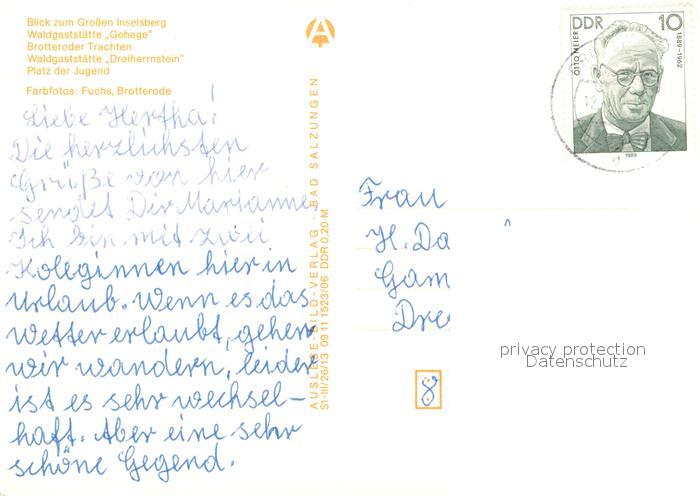 Blick zum Großen Inselsberg
Waldgaststätte „Gehege"
Brotteroder Trachten
Waldgaststätte „Dreiherrnstein"
Platz der Jugend
Farbfotos: Fuchs, Brotterode
Liebe Hertha!
Die herzlichsten
Grüße von hier
sendet Dir Marianne
Ich bin mit zwei
Koleginnen hier in
Urlaub. Wenn es das
Wetter erlaubt, gehen
wir wandern, leider
ist es sehr wechsel-
haft. Aber eine sehr
schöne Gegend.
AUSLESE-BILD-VERLAG · BAD SALZUNGEN
S1-III/26/13 09 11 1523/06 DDR 0,20 M
A
DDR 10
OTTO MEIER
1889-1962
1989
Frau
H. Da
Gam
Dre
8
privacy protection
Datenschutz